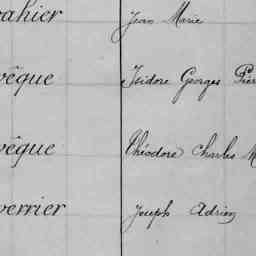 ahier Jean Marie
vêque Isidore Georges Pier
vêque Théodore Charles M
verrier Joseph Adrien